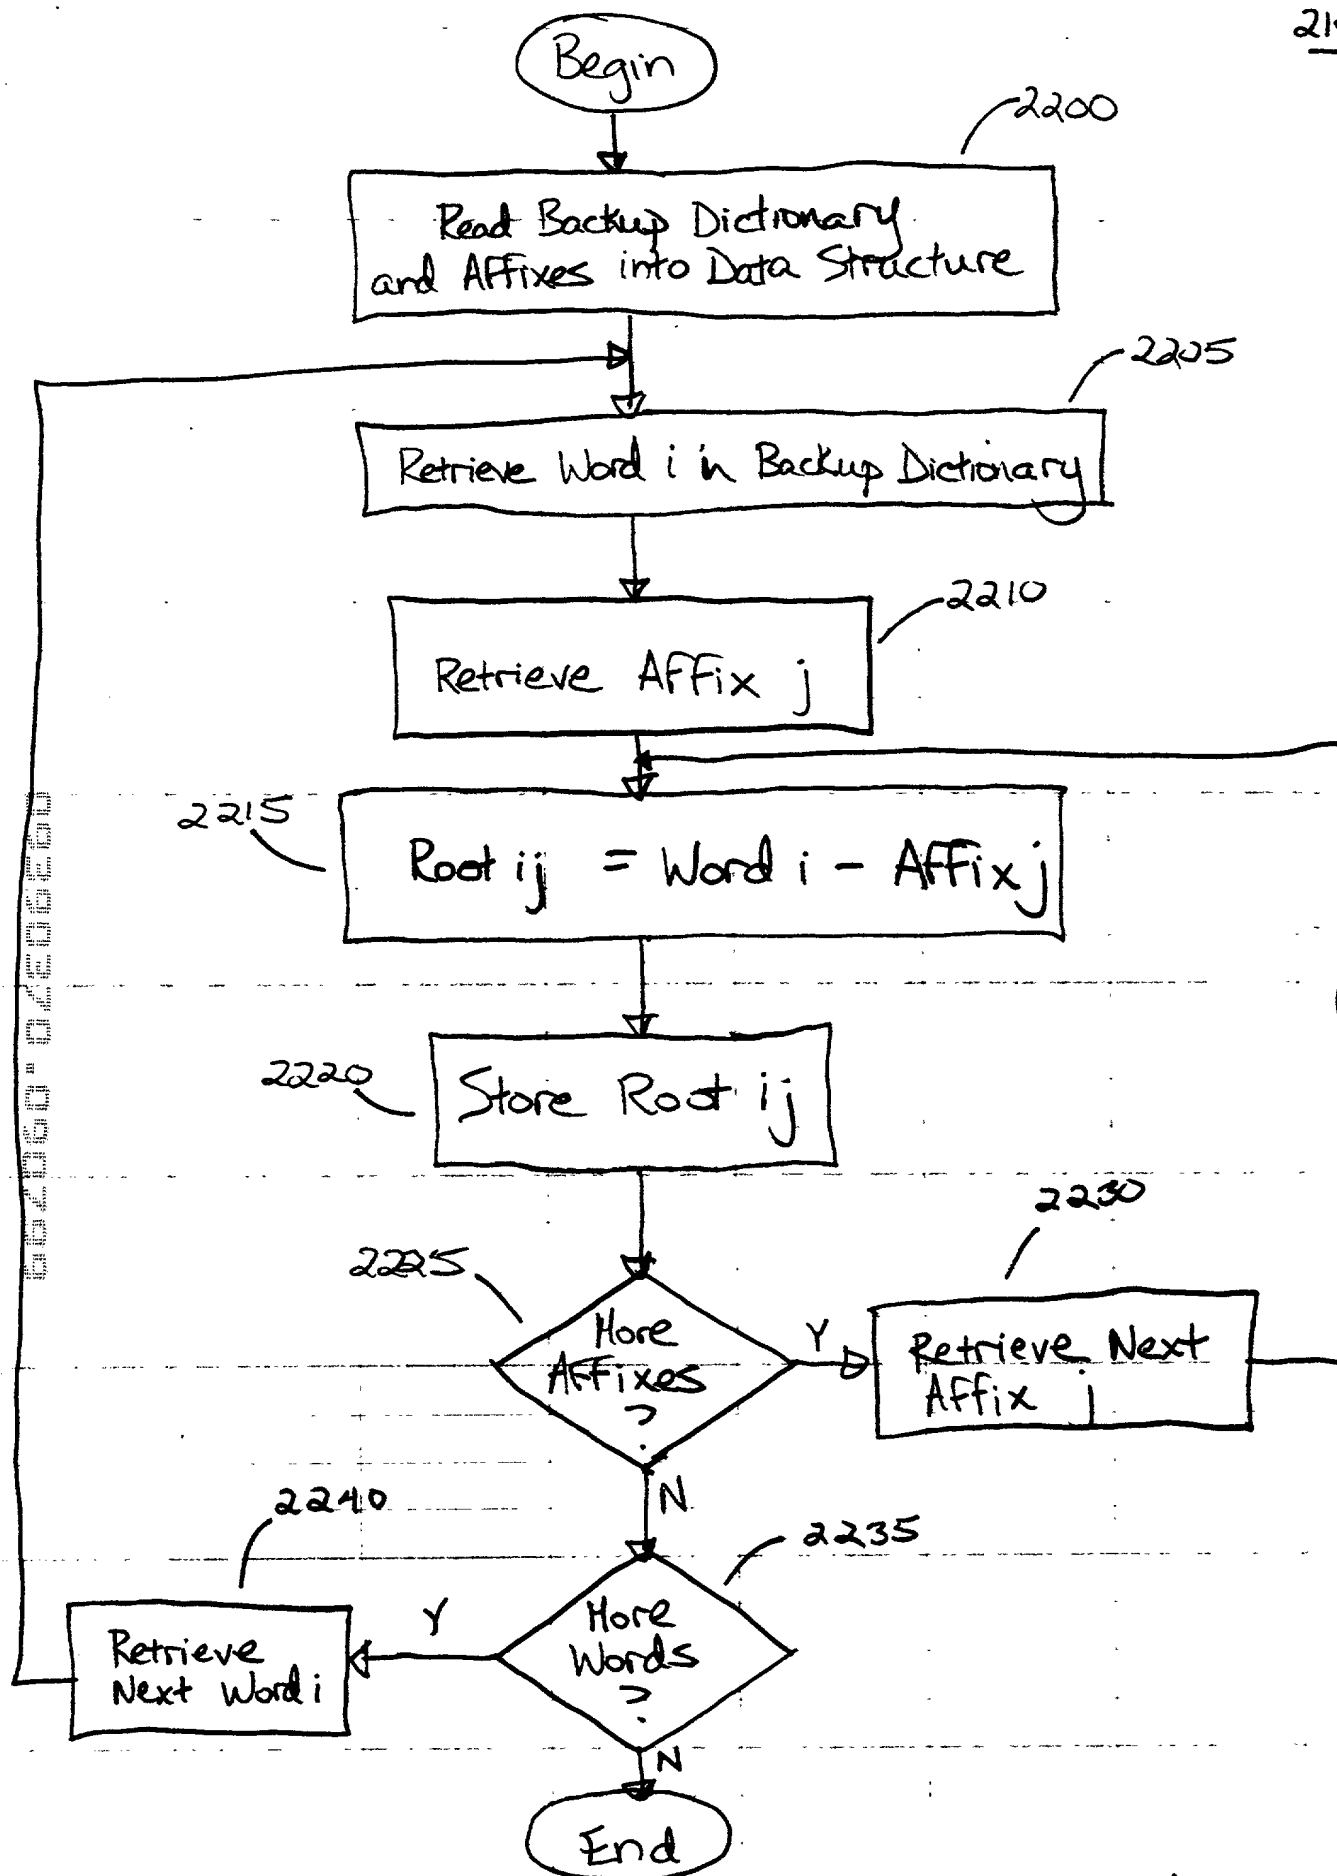 Begin
2200
Read Backup Dictionary
and Affixes into Data Structure
2205
Retrieve Word i in Backup Dictionary
2210
Retrieve Affix j
2215
Root ij = Word i - Affix j
2220
Store Root ij
2225
More
Affixes
?
Y
2230
Retrieve Next
Affix j
N
2240
2235
More
Words
?
Y
Retrieve
Next Word i
N
End